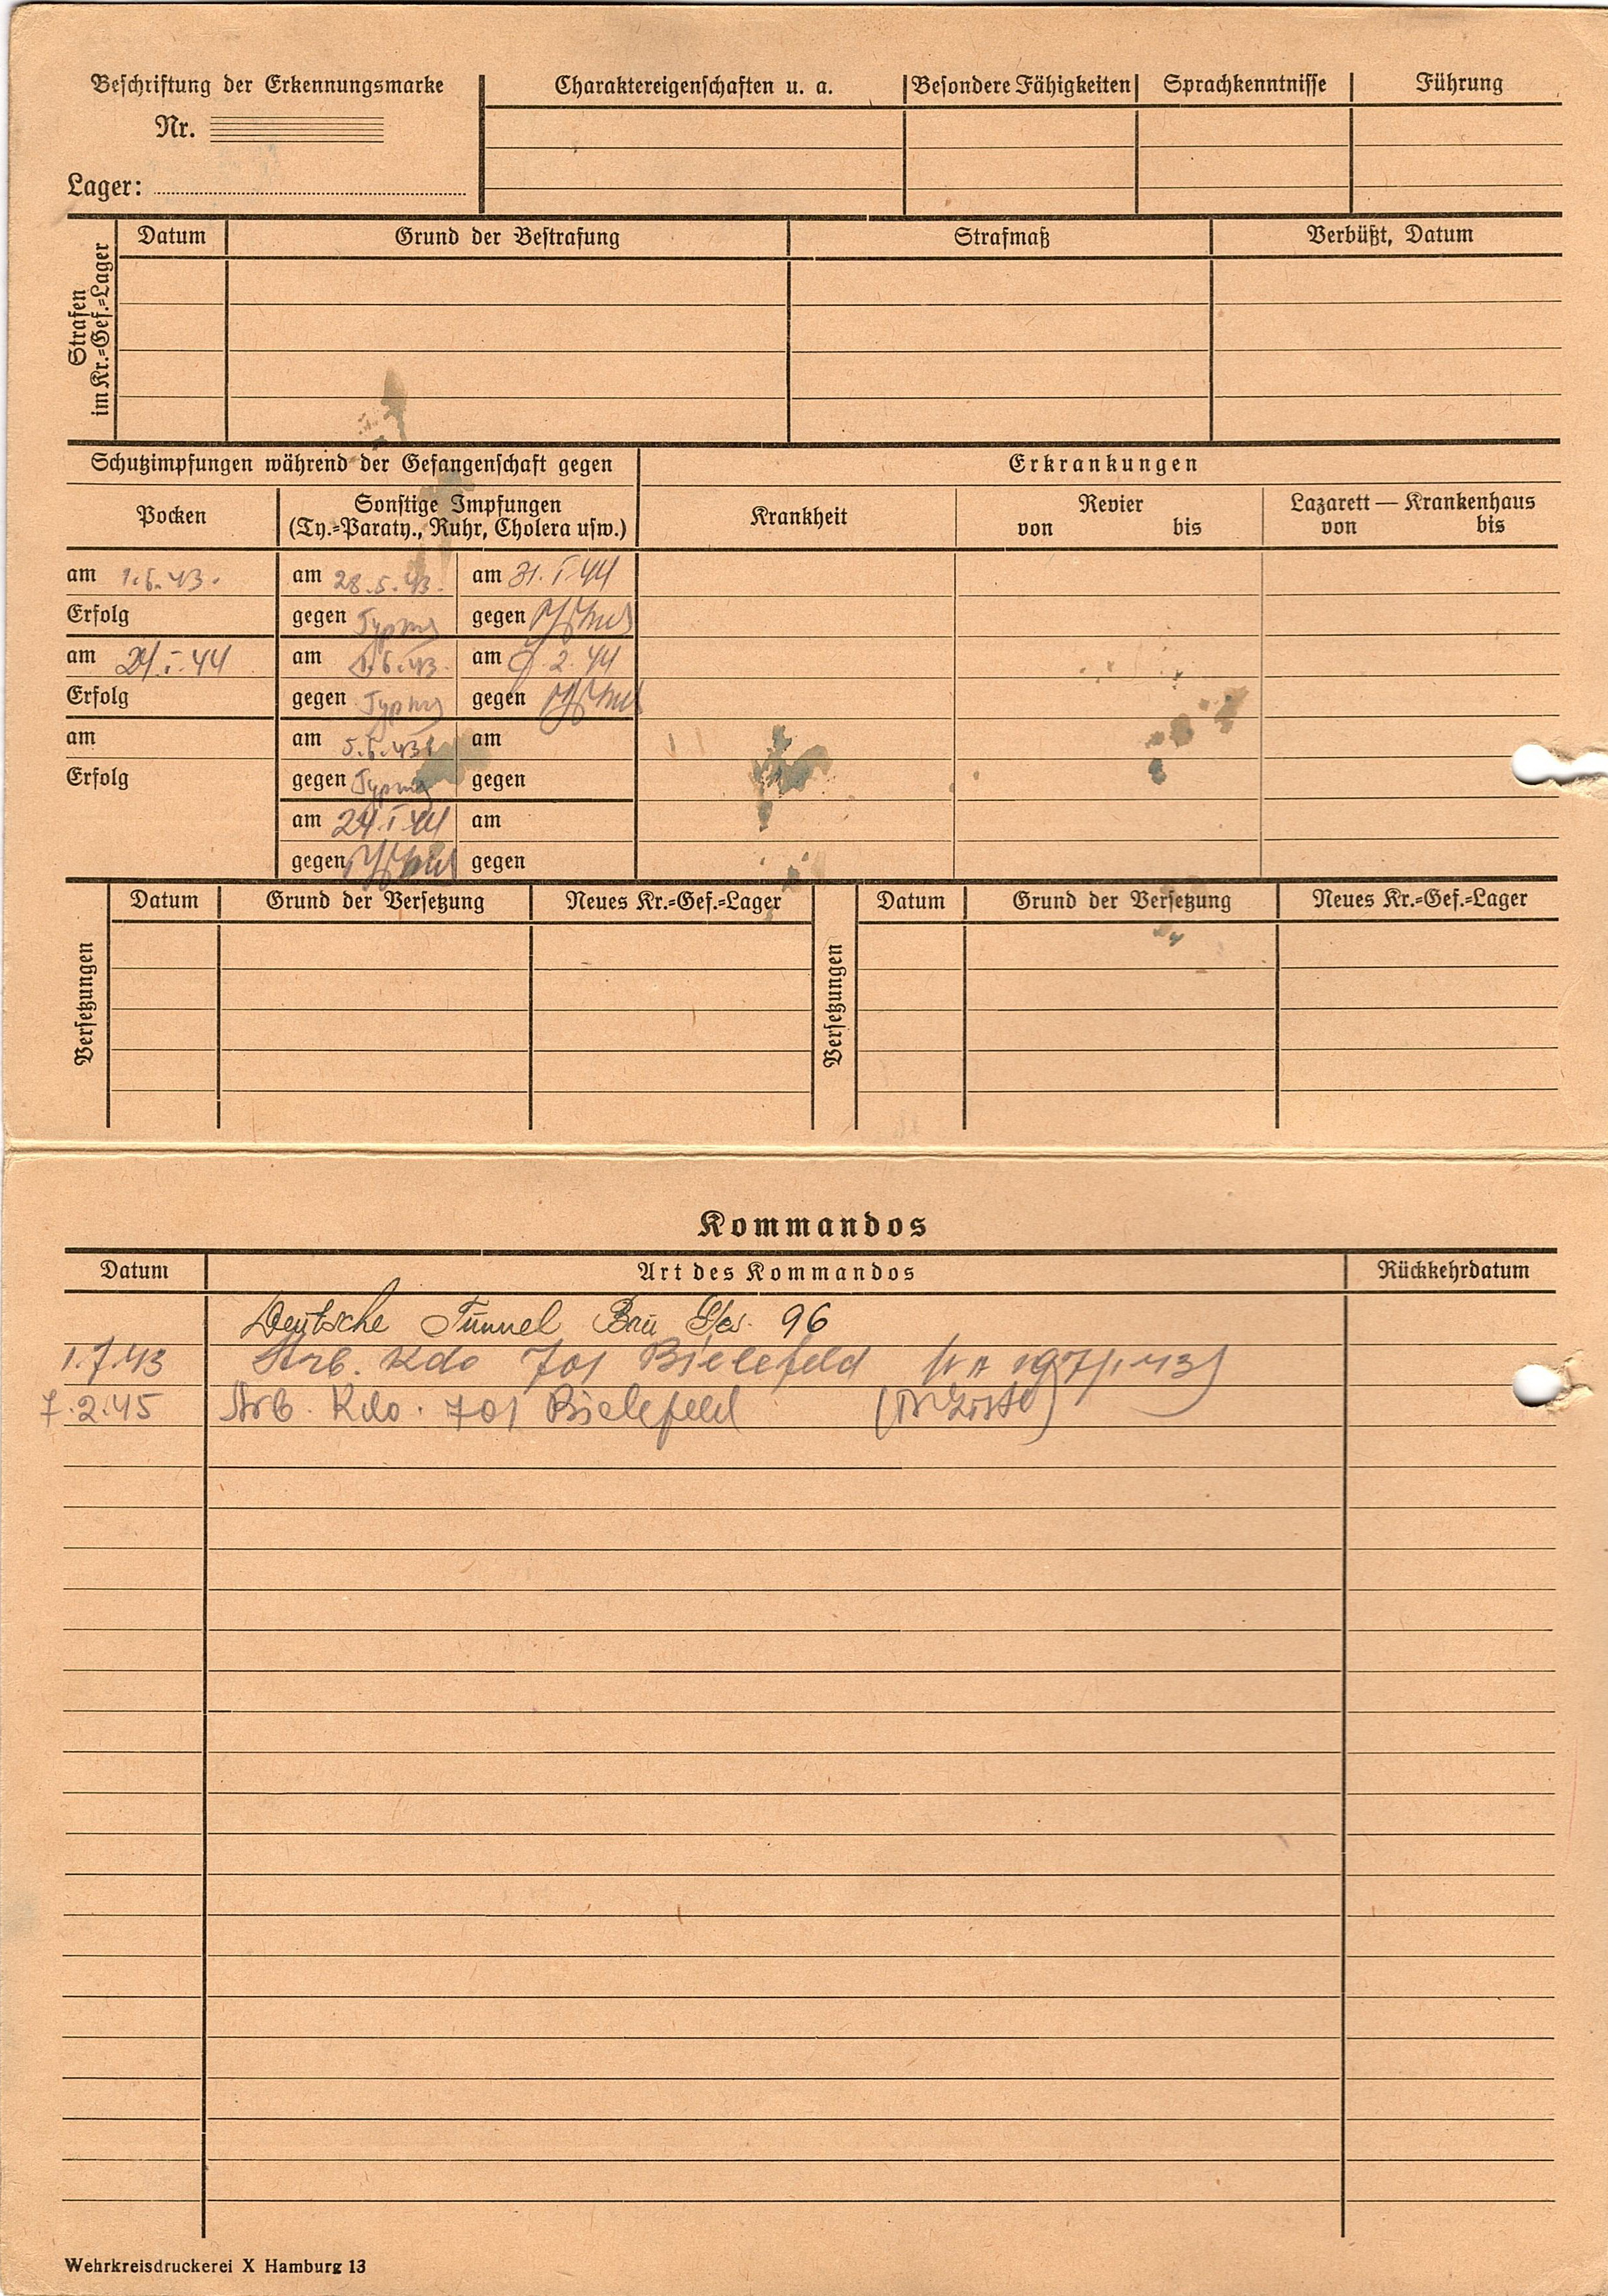 Beschriftung der Erkennungsmarke
Nr.
Lager:
Charaktereigenschaften u. a. Besondere Fähigkeiten Sprachkenntnisse Führung
Strafen im Kr.=Gef.=Lager
Datum Grund der Bestrafung Strafmaß Verbüßt, Datum
Schutzimpfungen während der Gefangenschaft gegen Erkrankungen
Pocken
Sonstige Impfungen
(Ty.=Paraty., Ruhr, Cholera usw.)
Krankheit
Revier
von bis
Lazarett — Krankenhaus
von bis
am 1.6.43. am 28.5.43. am 31.I.44
Erfolg gegen Typhus gegen Typhus
am 24.I.44 am 1.6.43. am 2.44
Erfolg gegen Typhus gegen Typhus
am am 5.6.43 am
Erfolg gegen Typhus gegen
am 24.I.44 am
gegen Typhus gegen
Versetzungen
Datum Grund der Versetzung Neues Kr.=Gef.=Lager
Versetzungen
Datum Grund der Versetzung Neues Kr.=Gef.=Lager
Kommandos
Datum Art des Kommandos Rückkehrdatum
Deutsche Tunnel Bau Ges. 96
1.7.43 Arb. Kdo 701 Bielefeld
7.2.45 Arb. Kdo. 701 Bielefeld
Wehrkreisdruckerei X Hamburg 13